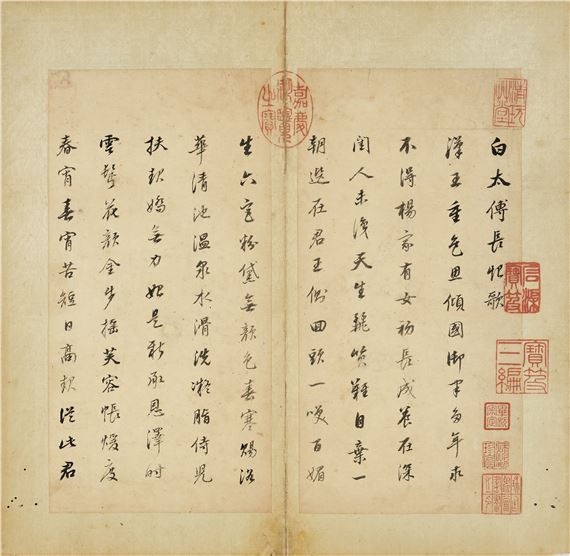 白太傅長恨歌
漢王重色思傾國御宇多年求
不得楊家有女初長成養在深
閨人未識天生麗質難自棄一
朝選在君王側回頭一咲百媚
生六宮粉黛無顏色春寒賜浴
華清池溫泉水滑洗凝脂侍兒
扶起嬌無力始是新承恩澤時
雲鬢花顏金步搖芙蓉帳煖度
春宵春宵苦短日高起從此君
嘉慶御覽之寶
石渠寶笈
寶笈三編